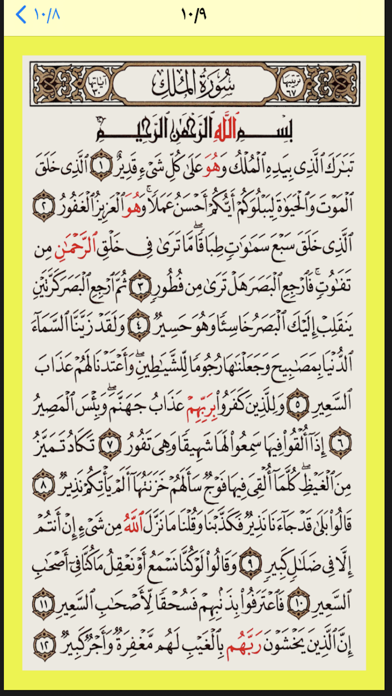 ١٠/٨
١٠/٩
ترتيبها ٦٧
سُورَةُ المُلْكِ
آياتها ٣٠
بِسْمِ ٱللَّهِ ٱلرَّحْمَٰنِ ٱلرَّحِيمِ
تَبَٰرَكَ ٱلَّذِى بِيَدِهِ ٱلْمُلْكُ وَهُوَ عَلَىٰ كُلِّ شَىْءٍ قَدِيرٌ ١ ٱلَّذِى خَلَقَ
ٱلْمَوْتَ وَٱلْحَيَوٰةَ لِيَبْلُوَكُمْ أَيُّكُمْ أَحْسَنُ عَمَلًا ۚ وَهُوَ ٱلْعَزِيزُ ٱلْغَفُورُ ٢
ٱلَّذِى خَلَقَ سَبْعَ سَمَٰوَٰتٍ طِبَاقًا ۖ مَّا تَرَىٰ فِى خَلْقِ ٱلرَّحْمَٰنِ مِن
تَفَٰوُتٍ ۖ فَٱرْجِعِ ٱلْبَصَرَ هَلْ تَرَىٰ مِن فُطُورٍ ٣ ثُمَّ ٱرْجِعِ ٱلْبَصَرَ كَرَّتَيْنِ
يَنقَلِبْ إِلَيْكَ ٱلْبَصَرُ خَاسِئًا وَهُوَ حَسِيرٌ ٤ وَلَقَدْ زَيَّنَّا ٱلسَّمَآءَ
ٱلدُّنْيَا بِمَصَٰبِيحَ وَجَعَلْنَٰهَا رُجُومًا لِّلشَّيَٰطِينِ ۖ وَأَعْتَدْنَا لَهُمْ عَذَابَ
ٱلسَّعِيرِ ٥ وَلِلَّذِينَ كَفَرُوا۟ بِرَبِّهِمْ عَذَابُ جَهَنَّمَ ۖ وَبِئْسَ ٱلْمَصِيرُ
٦ إِذَآ أُلْقُوا۟ فِيهَا سَمِعُوا۟ لَهَا شَهِيقًا وَهِىَ تَفُورُ ٧ تَكَادُ تَمَيَّزُ
مِنَ ٱلْغَيْظِ ۖ كُلَّمَآ أُلْقِىَ فِيهَا فَوْجٌ سَأَلَهُمْ خَزَنَتُهَآ أَلَمْ يَأْتِكُمْ نَذِيرٌ ٨
قَالُوا۟ بَلَىٰ قَدْ جَآءَنَا نَذِيرٌ فَكَذَّبْنَا وَقُلْنَا مَا نَزَّلَ ٱللَّهُ مِن شَىْءٍ إِنْ أَنتُمْ
إِلَّا فِى ضَلَٰلٍ كَبِيرٍ ٩ وَقَالُوا۟ لَوْ كُنَّا نَسْمَعُ أَوْ نَعْقِلُ مَا كُنَّا فِىٓ أَصْحَٰبِ
ٱلسَّعِيرِ ١٠ فَٱعْتَرَفُوا۟ بِذَنۢبِهِمْ فَسُحْقًا لِّأَصْحَٰبِ ٱلسَّعِيرِ ١١
إِنَّ ٱلَّذِينَ يَخْشَوْنَ رَبَّهُم بِٱلْغَيْبِ لَهُم مَّغْفِرَةٌ وَأَجْرٌ كَبِيرٌ ١٢